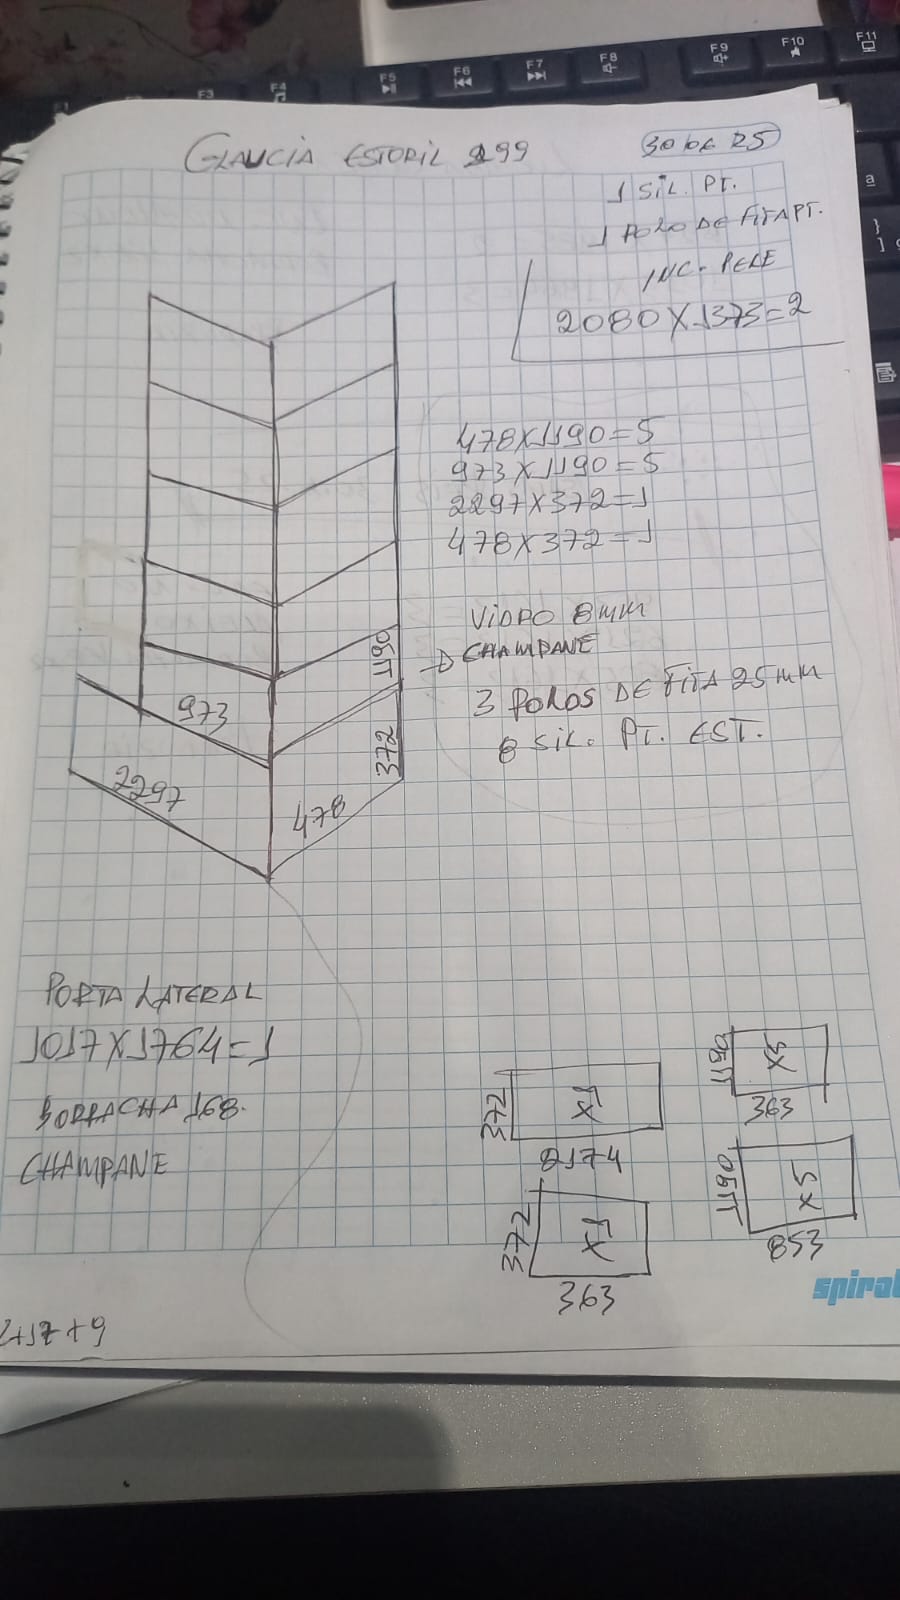 GLAUCIA ESTORIL 299
30 DE 25
1 SIL. PT.
1 ROLO DE FITA PT.
INC. PELE
2080X1373=2
478X1190=5
973X1190=5
2297X372=1
478X372=1
VIDRO 8MM
CHAMPANE
3 ROLOS DE FITA 25MM
8 SIL. PT. EST.
1190
973
372
2297
478
PORTA LATERAL
1017X1764=1
BORRACHA 168.
CHAMPANE
372
X1
2174
1190
X5
363
372
X1
363
1190
X5
853
spiral
+17+9
F3
F4
F5
F6
F7
F8
F9
F10
F11